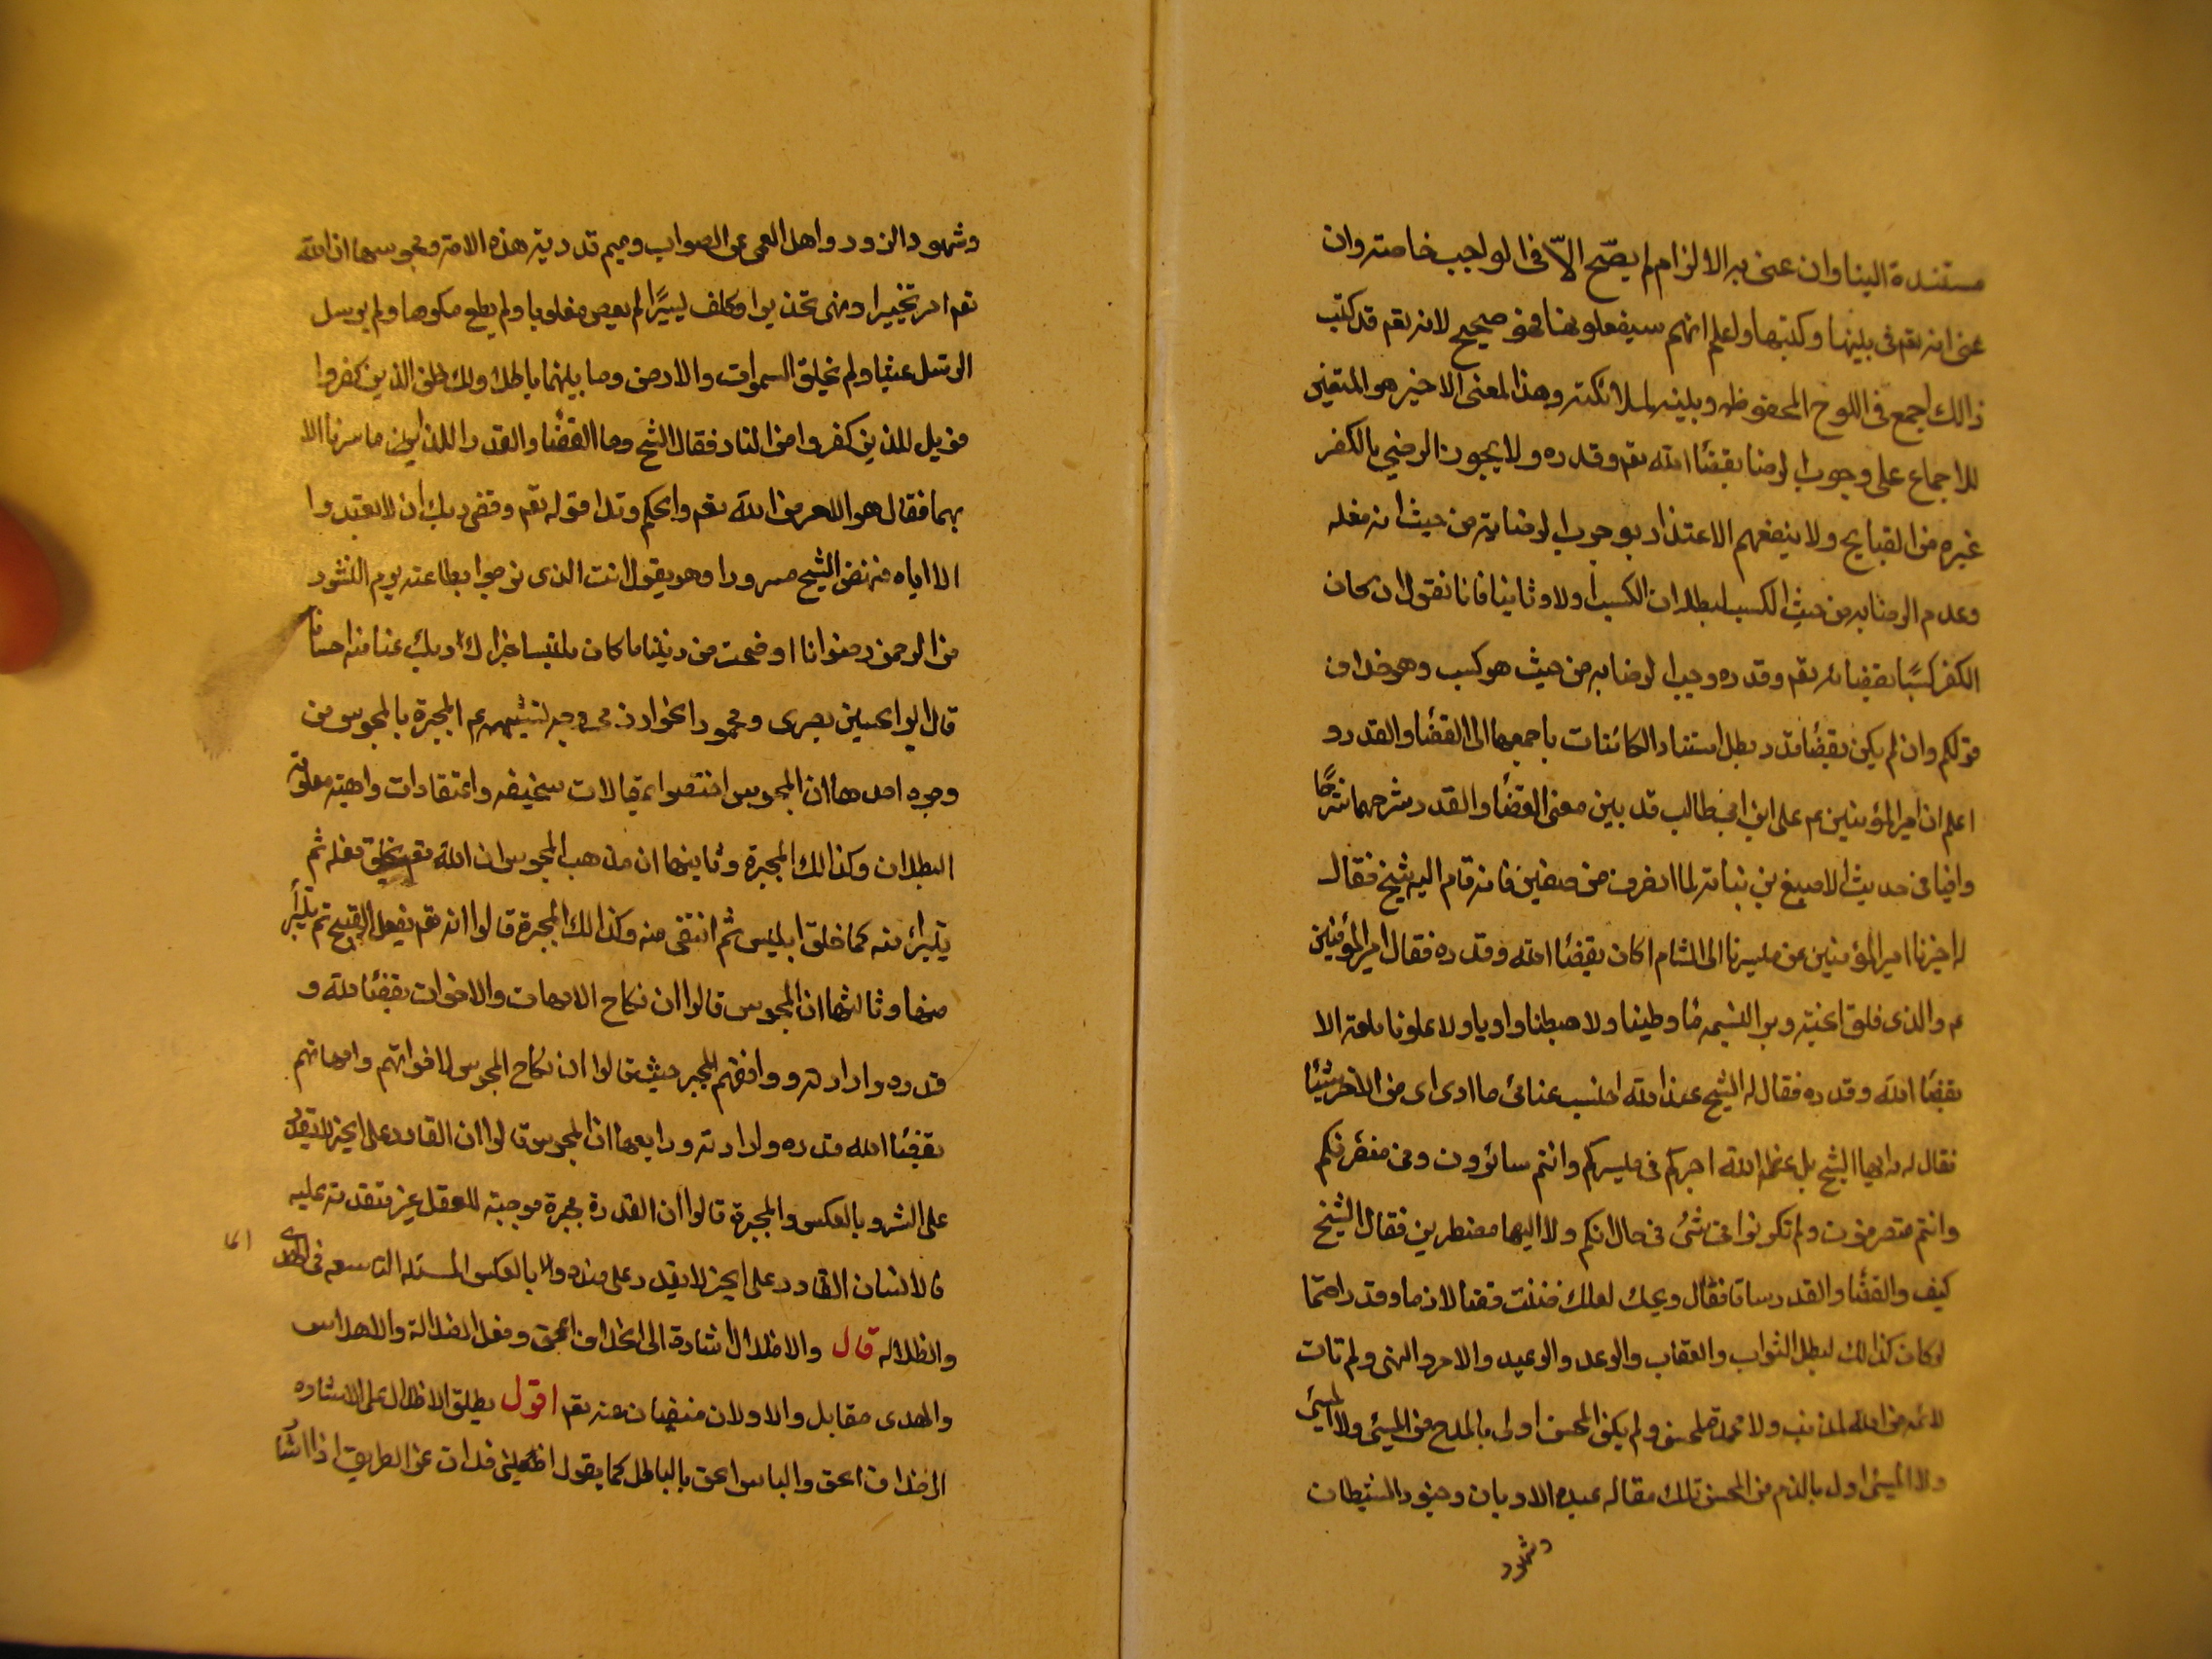 مستندة الينا وان عنى به الالزام لم يصّح الاّ فى الواجب خاصته وان
عنى انه تقم فى بلينها وكتبها ولعلم انهم سيفعلونها فهو صحيح لانه تقم قد كتب
ذالك اجمع فى اللوح المحفوظ وبلينه لملائكته وهذا المعنى الاخير هو المتعين
للاجماع على وجوب الرضا بقضا الله تقم وقدره ولا يجوز الرضى بالكفر
غيره من القبايح ولا ينفعهم الاعتذار بوجوب الرضا به من حيث انه فعله
وعدم الرضا به من حيث الكسب لبطلان الكسب اولا وثانيا فانا نقول ان كان
الكفر كسبًا بقضائه تقم وقدره وجب الرضا به من حيث هو كسب وهو خلاف
قولكم وان لم يكن بقضا قدر بطل استناد الكائنات باجمعها الى القضا والقدر و
اعلم ان امير المؤمنين ع على ابن ابيطالب قد بين معنى القضا والقدر وشرحهما شرحًا
وافيا فى حديث الاصبغ بن نباته لما انصرف من صفين فانه قام اليه شيخ فقال
له اخبرنا امير المؤمنين عن مسيرنا الى الشام اكان بقضا الله وقدره فقال امير المؤمنين
ع والذى فلق الحبة وبرا النسمه ما وطينا ولا هبطنا واديا ولا علونا تلعة الا
بقضا الله وقدره فقال له الشيخ عند الله احتسب عنائى ما ارى اى من الاجر شيئا
فقال له مه ايها الشيخ بل عظم الله اجركم فى مسيركم وانتم سائرون وفى منصرفكم
وانتم منصرفون ولم تكونوا فى شئ فى حالاتكم ولا اليها مضطرين فقال الشيخ
كيف والقضا والقدر ساقانا فقال ويحك لعلك ظننت قضا لازما وقدرا حتما
لو كان كذالك لبطل الثواب والعقاب والوعد والوعيد والامر والنهى ولم تات
لائمه من الله لمذنب ولا محمدة لمحسن ولم يكن المحسن اولى بالمدح من المسيئ ولا المسيئ
ولا المسيئ اولى بالذم من المحسن تلك مقاله عبده الاوبان وجنود الشيطان
وشهود
وشهود الزور واهل العمى عن الصواب وميم قدرية هذه الامة ومجوسها ان الله
تقم امر تخييرا ونهى تحذيرا وكلف يسيرًا لم يعص مغلوبا ولم يطع مكرها ولم يرسل
الرسل عبثا ولم يخلق السموات والارض وما بينهما باطلا ذلك ظن الذين كفروا
فويل للذين كفروا من النار فقال الشيخ وما القضا والقدر اللذان ما سرنا الا
بهما فقال هو الامر من الله تقم والحكم وتلا قوله تقم وقضى ربك ان لا تعبدوا
الا اياه فنهض الشيخ مسرورا وهو يقول انت الذى نرجوا بطاعته يوم النشور
من الرحمن رضوانا اوضحت من ديننا ما كان ملتبسا جزاك ربك عنا منه احسانا
قال ابو الحسين بصرى ومحمود الخوارزمى وجه تشبيهه ع المجبرة بالمجوس من
وجوه احدها ان المجوس اختصوا بمقالات سخيفه واعتقادات واهيته معلومة
البطلان وكذالك المجبرة وثانيها ان مذهب المجوس ان الله تقم يخلق فعله ثم
يتبرا منه كما خلق ابليس ثم انتفى منه وكذالك المجبرة قالوا انه تقم يفعل القبيح ثم يتبرأ
منها وثالثها ان المجوس قالوا ان نكاح الامهات والاخوات بقضا الله و
قدره وارادته ووافقهم المجبر حيث قالوا ان نكاح المجوس لاخواتهم وامهاتهم
بقضا الله قدره وارادته ورابعها ان المجوس قالوا ان القادر على الخير لا يقدر
على الشر وبالعكس والمجبرة قالوا ان القدرة مجبرة موجبته للفعل غير متقدمة عليه
فالانسان القادر على الخير لا يقدر على ضده ولا بالعكس المسئله التاسعه فى الهدى
والظلاله قال والاظلال اشارة الى الخلاف الحق وفعل الضلالة والاهلاك
والهدى مقابل والاولان منفيان عنه تقم اقول يطلق الاظلال على الاشاره
الى خلاف الحق والباس الحق بالباطل كما يقول اظلنى فلان عن الطريق اذا اشا